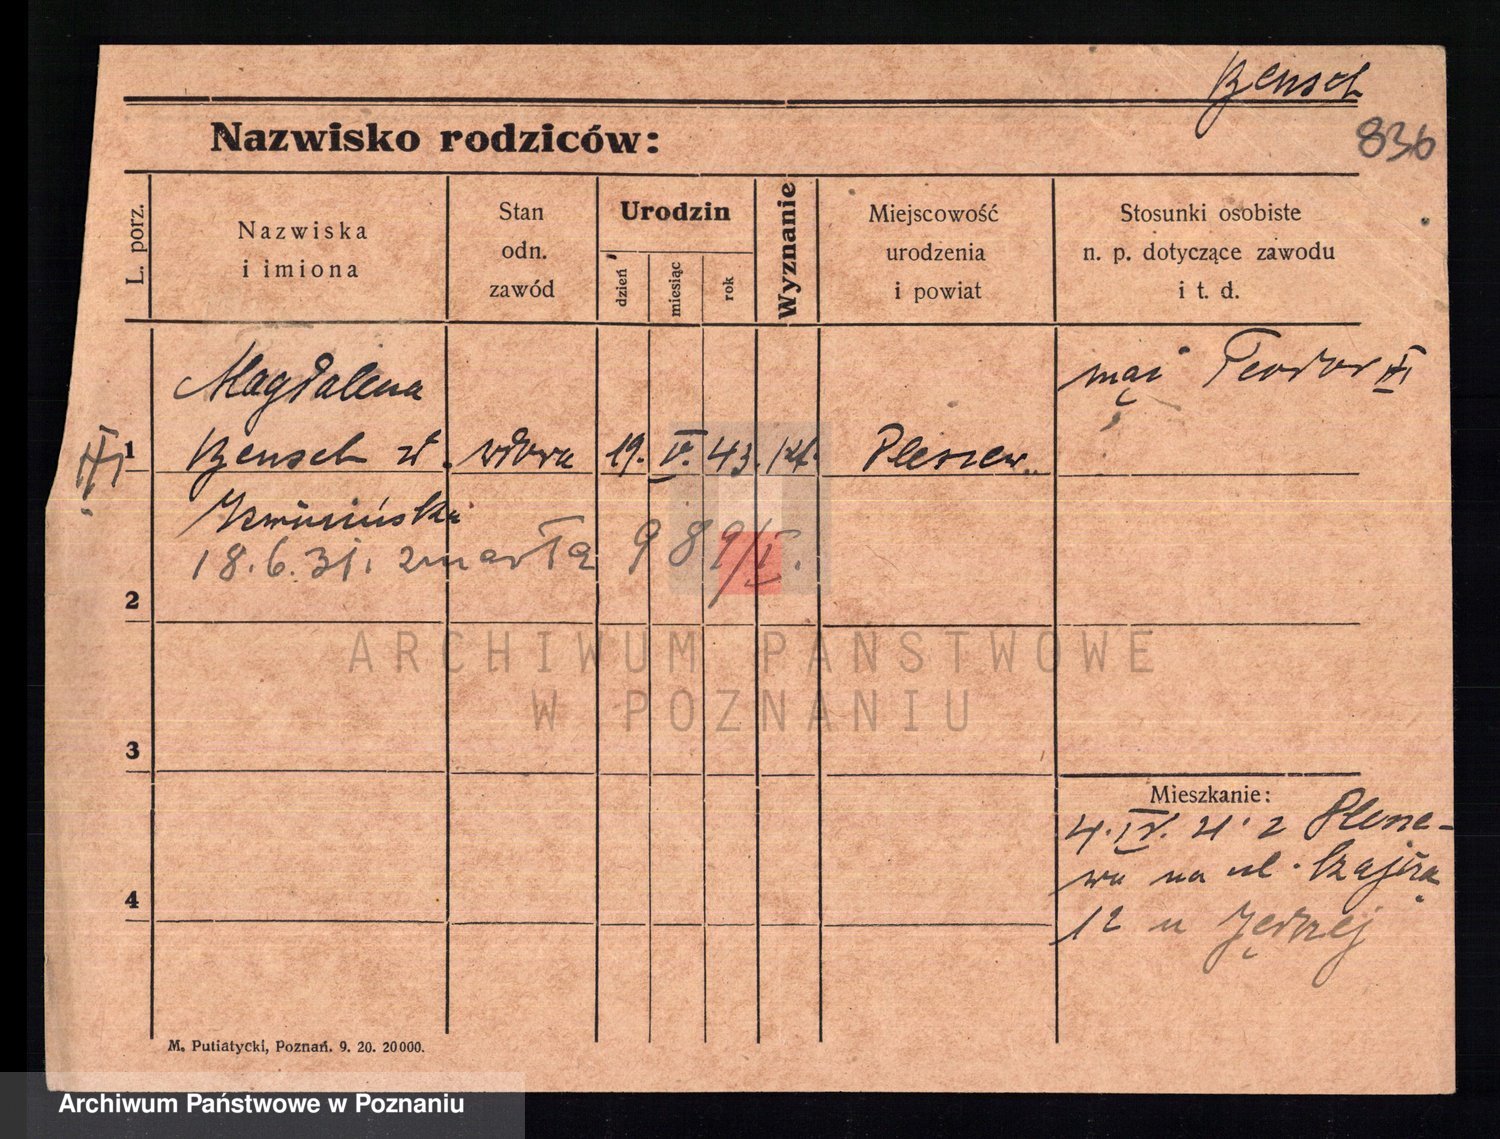 Bensch
836
Nazwisko rodziców:
L. porz.
Nazwiska
i imiona
Stan
odn.
zawód
Urodzin
dzień
miesiąc
rok
Wyznanie
Miejscowość
urodzenia
i powiat
Stosunki osobiste
n. p. dotyczące zawodu
i t. d.
Magdalena
mąż Teodor
1
Bensch wdowa 19. IV. 43. kat. Pleszew
18.6.31. zmarła 989/I.
2
3
4
Mieszkanie:
4. IV. 21. z Plesze-
wa na ul.
12 u
M. Putiatycki, Poznań. 9. 20. 20000.
ARCHIWUM PAŃSTWOWE
W POZNANIU
Archiwum Państwowe w Poznaniu